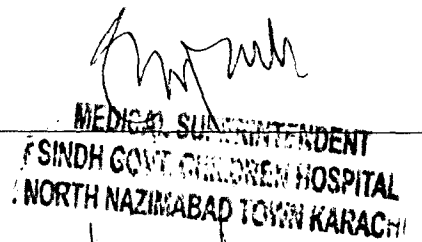 MEDICAL SUPERINTENDENT
SINDH GOVT. CHILDREN HOSPITAL
NORTH NAZIMABAD TOWN KARACHI